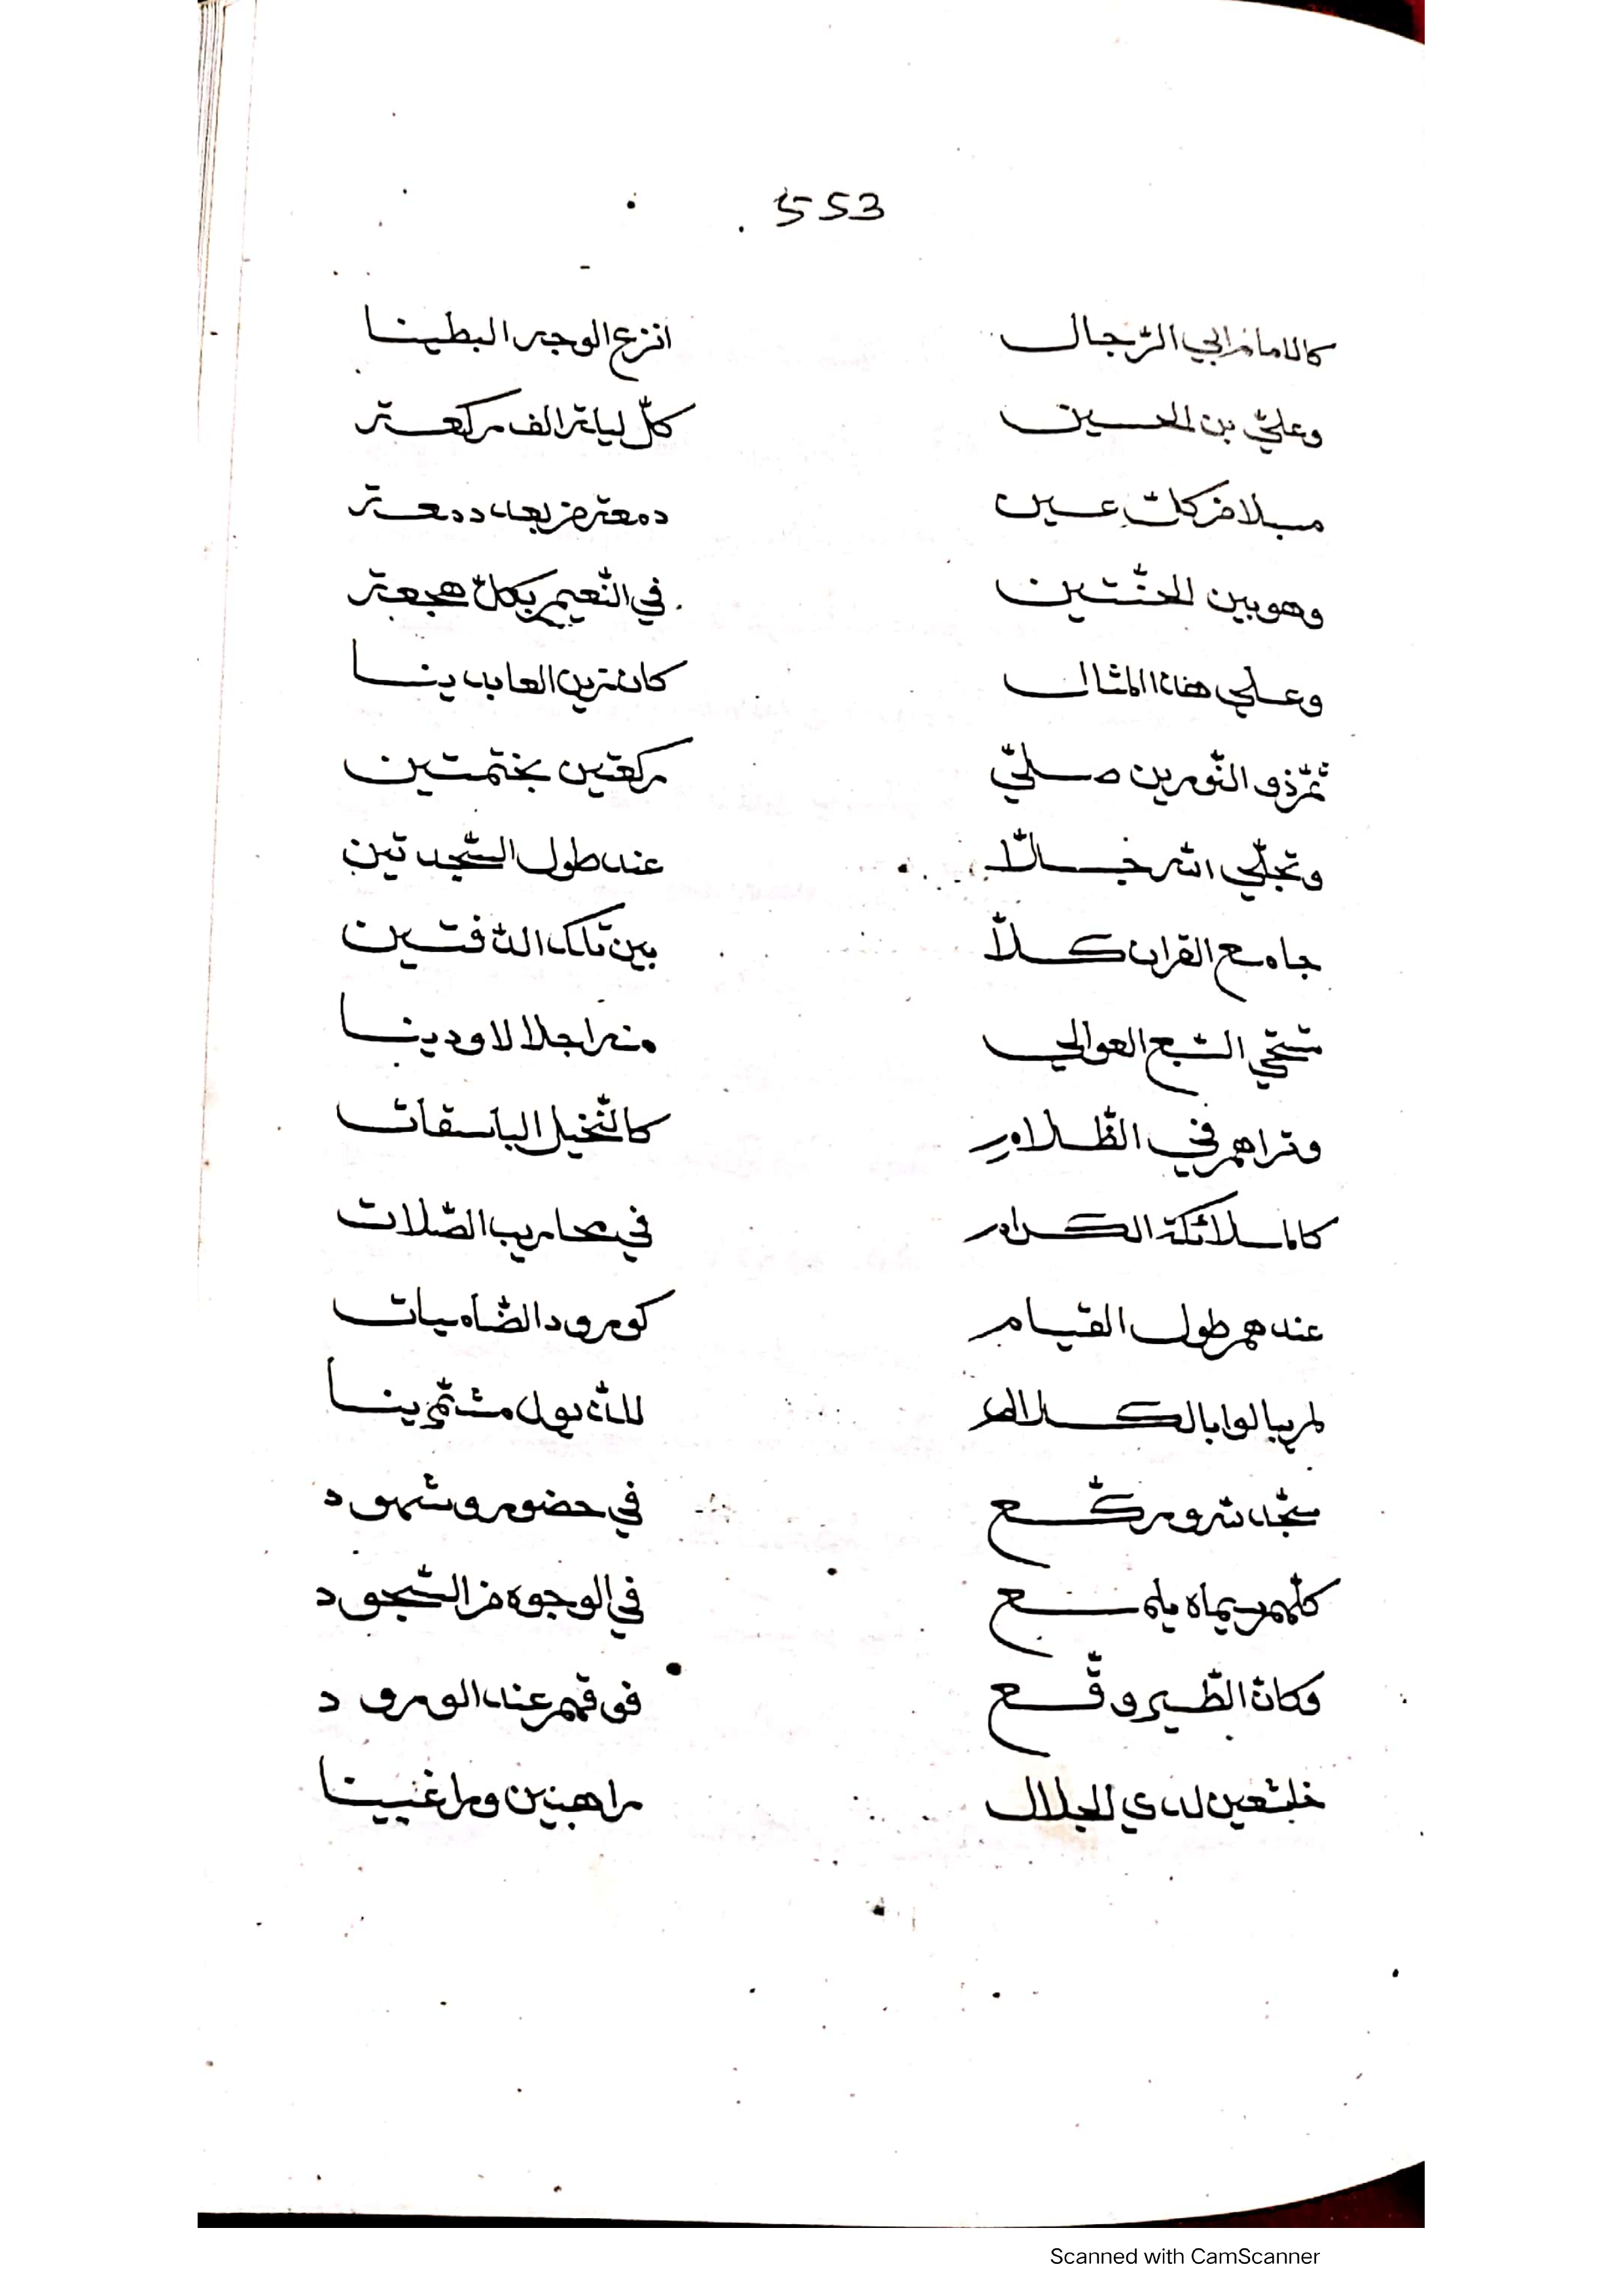 553
كالامام ابي الرّجال انزع الوجه البطينا
وعليّ بن الحسين كلّ ليلة الف ركعة
مسبلا من كلّ عين دمعة من بعد دمعة
وهو بين الجنّتين في النّعيم بكلّ هجعة
وعلي هذا المثال كان زين العابدينا
ثمّ ذو النّورين صلّي ركعتين بختمتين
وتجلّي الله خالّا عند طول السّجدتين
جامع القران كلاّ بين تلك الدّفتين
تستحي السّبع العوالي منه اجلالا ودينا
وتراهم في الظّلام كالنّخيل الباسقات
كالملائكة الكرام في محاريب الصّلات
عندهم طول القيام كورود الضّاميات
لم يبالوا بالكلام للدّ بول مشمّرينا
سجّد لله وركّع في حضور وشهود
كلّهم سيماه يلمع في الوجوه من السّجود
وكانّ الطّير وقّع فوقهم عند الورود
خاشعين لذي الجلال راهبين وراغبينا
Scanned with CamScanner